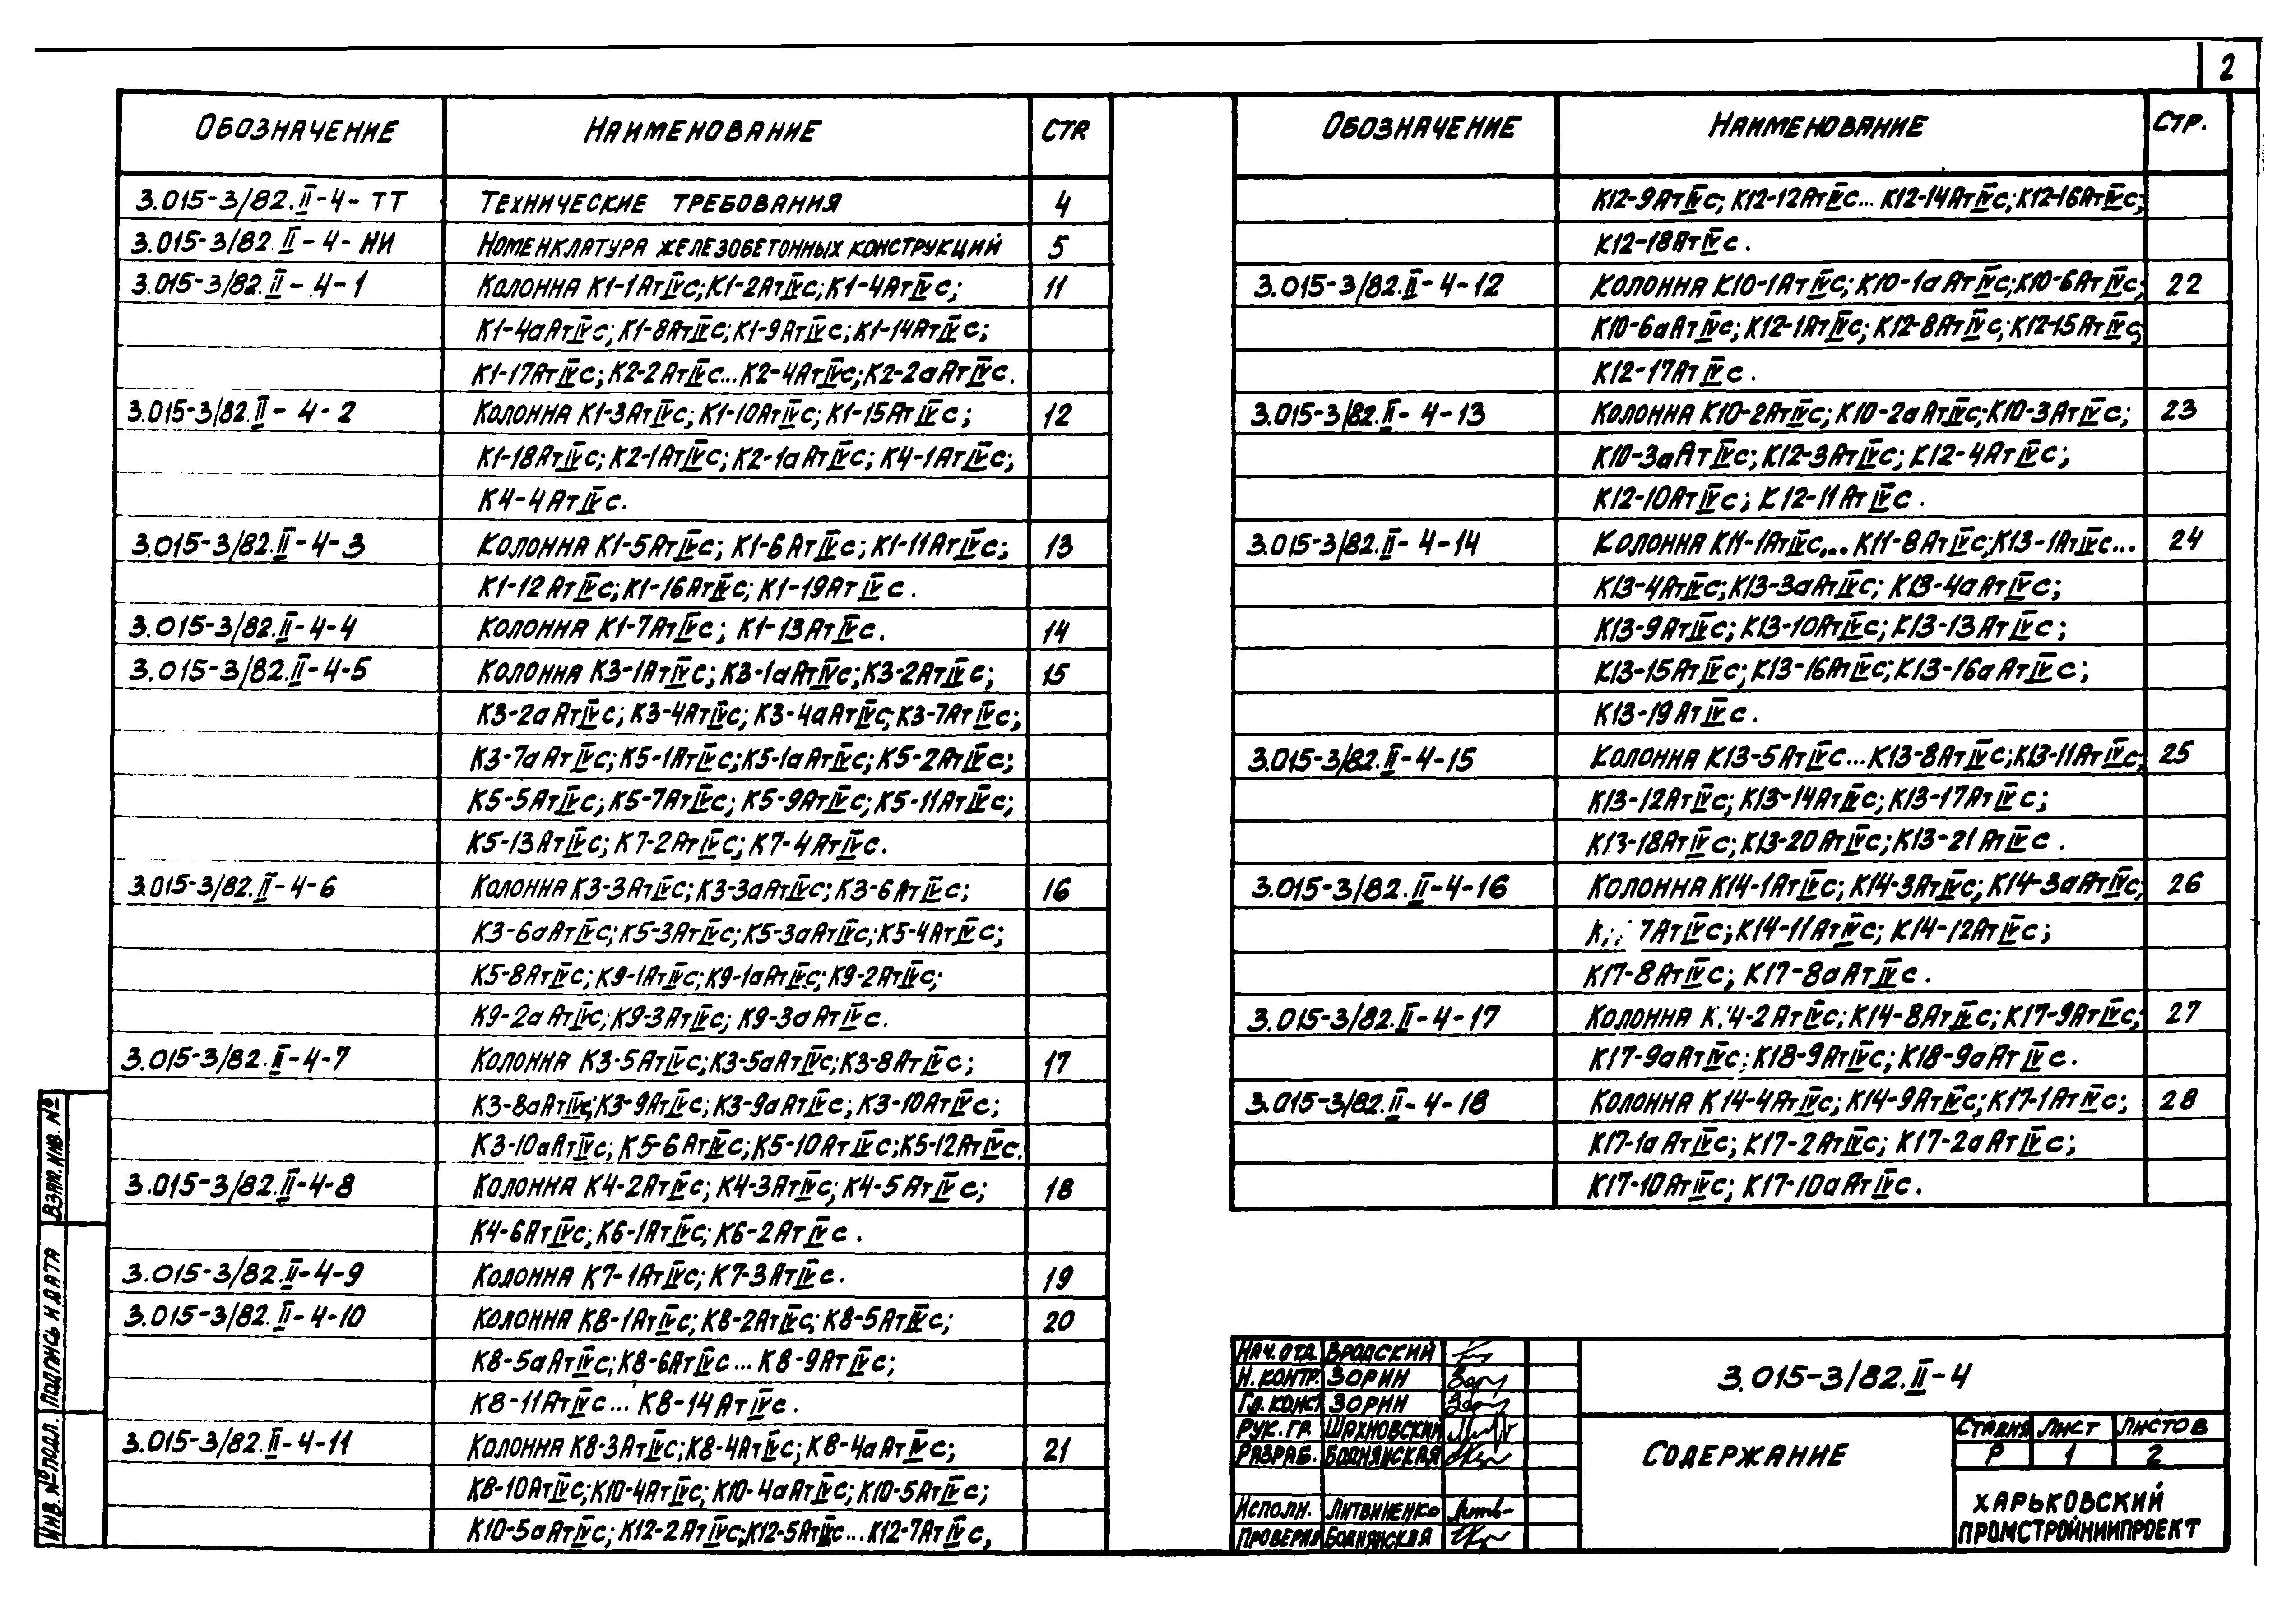 2
Обозначение Наименование Стр
3.015-3/82.II-4-ТТ Технические требования 4
3.015-3/82.II-4-НИ Номенклатура железобетонных конструкций 5
3.015-3/82.II-4-1 Колонна К1-1АтIVс; К1-2АтIVс; К1-4АтIVс; 11
К1-4аАтIVс; К1-8АтIVс; К1-9АтIVс; К1-14АтIVс;
К1-17АтIVс; К2-2АтIVс... К2-4АтIVс; К2-2аАтIVс.
3.015-3/82.II-4-2 Колонна К1-3АтIVс; К1-10АтIVс; К1-15АтIVс; 12
К1-18АтIVс; К2-1АтIVс; К2-1аАтIVс; К4-1АтIVс;
К4-4АтIVс.
3.015-3/82.II-4-3 Колонна К1-5АтIVс; К1-6АтIVс; К1-11АтIVс; 13
К1-12АтIVс; К1-16АтIVс; К1-19АтIVс.
3.015-3/82.II-4-4 Колонна К1-7АтIVс; К1-13АтIVс. 14
3.015-3/82.II-4-5 Колонна К3-1АтIVс; К3-1аАтIVс; К3-2АтIVс; 15
К3-2аАтIVс; К3-4АтIVс; К3-4аАтIVс; К3-7АтIVс;
К3-7аАтIVс; К5-1АтIVс; К5-1аАтIVс; К5-2АтIVс;
К5-5АтIVс; К5-7АтIVс; К5-9АтIVс; К5-11АтIVс;
К5-13АтIVс; К7-2АтIVс; К7-4АтIVс.
3.015-3/82.II-4-6 Колонна К3-3АтIVс; К3-3аАтIVс; К3-6АтIVс; 16
К3-6аАтIVс; К5-3АтIVс; К5-3аАтIVс; К5-4АтIVс;
К5-8АтIVс; К9-1АтIVс; К9-1аАтIVс; К9-2АтIVс;
К9-2аАтIVс; К9-3АтIVс; К9-3аАтIVс.
3.015-3/82.II-4-7 Колонна К3-5АтIVс; К3-5аАтIVс; К3-8АтIVс; 17
К3-8аАтIVс; К3-9АтIVс; К3-9аАтIVс; К3-10АтIVс;
К3-10аАтIVс; К5-6АтIVс; К5-10АтIVс; К5-12АтIVс.
3.015-3/82.II-4-8 Колонна К4-2АтIVс; К4-3АтIVс; К4-5АтIVс; 18
К4-6АтIVс; К6-1АтIVс; К6-2АтIVс.
3.015-3/82.II-4-9 Колонна К7-1АтIVс; К7-3АтIVс. 19
3.015-3/82.II-4-10 Колонна К8-1АтIVс; К8-2АтIVс; К8-5АтIVс; 20
К8-5аАтIVс; К8-6АтIVс... К8-9АтIVс;
К8-11АтIVс... К8-14АтIVс.
3.015-3/82.II-4-11 Колонна К8-3АтIVс; К8-4АтIVс; К8-4аАтIVс; 21
К8-10АтIVс; К10-4АтIVс; К10-4аАтIVс; К10-5АтIVс;
К10-5аАтIVс; К12-2АтIVс; К12-5АтIVс... К12-7АтIVс,
Обозначение Наименование Стр.
К12-9АтIVс; К12-12АтIVс... К12-14АтIVс; К12-16АтIVс;
К12-18АтIVс.
3.015-3/82.II-4-12 Колонна К10-1АтIVс; К10-1аАтIVс; К10-6АтIVс; 22
К10-6аАтIVс; К12-1АтIVс; К12-8АтIVс; К12-15АтIVс;
К12-17АтIVс.
3.015-3/82.II-4-13 Колонна К10-2АтIVс; К10-2аАтIVс; К10-3АтIVс; 23
К10-3аАтIVс; К12-3АтIVс; К12-4АтIVс;
К12-10АтIVс; К12-11АтIVс.
3.015-3/82.II-4-14 Колонна К11-1АтIVс... К11-8АтIVс; К13-1АтIVс... 24
К13-4АтIVс; К13-3аАтIVс; К13-4аАтIVс;
К13-9АтIVс; К13-10АтIVс; К13-13АтIVс;
К13-15АтIVс; К13-16АтIVс; К13-16аАтIVс;
К13-19АтIVс.
3.015-3/82.II-4-15 Колонна К13-5АтIVс... К13-8АтIVс; К13-11АтIVс; 25
К13-12АтIVс; К13-14АтIVс; К13-17АтIVс;
К13-18АтIVс; К13-20АтIVс; К13-21АтIVс.
3.015-3/82.II-4-16 Колонна К14-1АтIVс; К14-3АтIVс; К14-3аАтIVс; 26
7АтIVс; К14-11АтIVс; К14-12АтIVс;
К17-8АтIVс; К17-8аАтIVс.
3.015-3/82.II-4-17 Колонна 4-2АтIVс; К14-8АтIVс; К17-9АтIVс; 27
К17-9аАтIVс; К18-9АтIVс; К18-9аАтIVс.
3.015-3/82.II-4-18 Колонна К14-4АтIVс; К14-9АтIVс; К17-1АтIVс; 28
К17-1аАтIVс; К17-2АтIVс; К17-2аАтIVс;
К17-10АтIVс; К17-10аАтIVс.
Нач. отд. Бродский
Н. контр. Зорин
Гл. конст Зорин
Рук. гр. Шахновский
Разраб. Боднянская
Исполн. Литвиненко
Проверил Боднянская
3.015-3/82.II-4
Содержание
Стадия Лист Листов
Р 1 2
Харьковский
Промстройниипроект
Взам. инв. №
Подпись и дата
Инв. № подл.